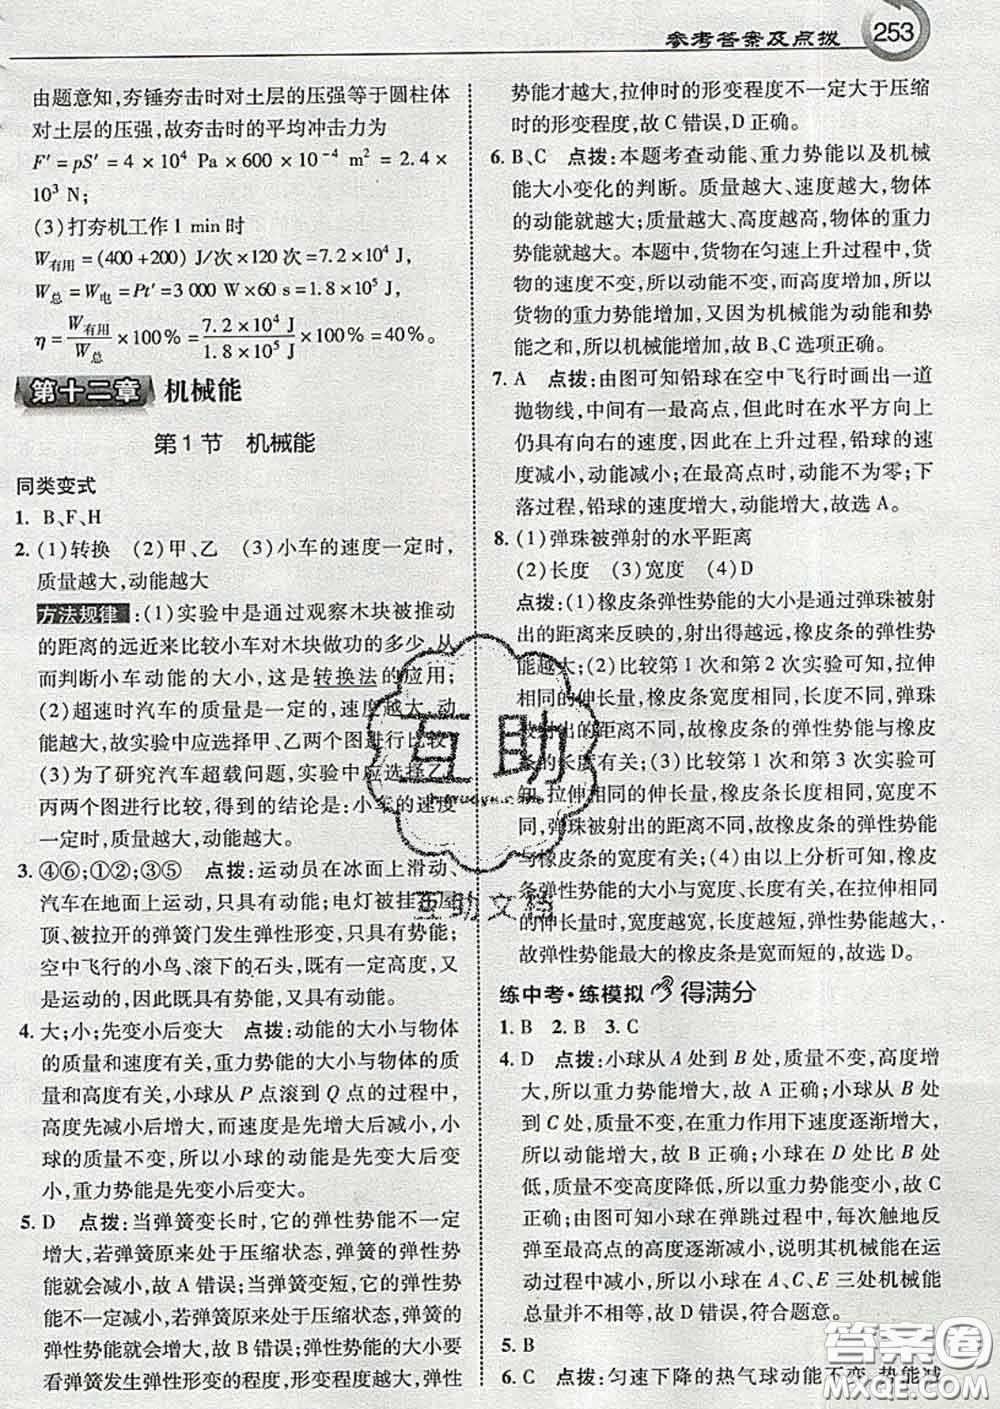 参考答案及点拨 253
由题意知,夯锤夯击时对土层的压强等于圆柱体
对土层的压强,故夯击时的平均冲击力为
F′=pS′=4×10⁴ Pa×600×10⁻⁴ m²=2.4×
10³ N;
(3)打夯机工作1 min时
W有用=(400+200) J/次×120次=7.2×10⁴ J,
W总=W电=Pt′=3 000 W×60 s=1.8×10⁵ J,
η=W有用/W总×100%=7.2×10⁴ J/1.8×10⁵ J×100%=40%。
第十二章 机械能
第1节 机械能
同类变式
1. B、F、H
2. (1)转换 (2)甲、乙 (3)小车的速度一定时,
质量越大,动能越大
方法规律:(1)实验中是通过观察木块被推动
的距离的远近来比较小车对木块做功的多少,从
而判断小车动能的大小,这是转换法的应用;
(2)超速时汽车的质量是一定的,速度越大,动
能越大,故实验中应选择甲、乙两个图进行比较;
(3)为了研究汽车超载问题,实验中应选择乙、
丙两个图进行比较,得到的结论是:小车的速度
一定时,质量越大,动能越大。
3. ④⑥;①②;③⑤ 点拨:运动员在冰面上滑动、
汽车在地面上运动,只具有动能;电灯被挂在屋
顶、被拉开的弹簧门发生弹性形变,只具有势能;
空中飞行的小鸟、滚下的石头,既有一定高度,又
是运动的,因此既具有势能,又具有动能。
4. 大;小;先变小后变大 点拨:动能的大小与物体
的质量和速度有关,重力势能的大小与物体的质量
和高度有关。小球从P点滚到Q点的过程中,
高度先减小后增大,而速度是先增大后减小,小
球的质量不变,所以小球的动能是先变大后变
小,重力势能是先变小后变大。
5. D 点拨:当弹簧变长时,它的弹性势能不一定
增大,若弹簧原来处于压缩状态,弹簧的弹性势
能就会减小,故A错误;当弹簧变短,它的弹性势
能不一定减小,若弹簧原来处于压缩状态,弹簧的
弹性势能就会增大,故B错误;弹性势能的大小要
看弹簧发生弹性形变的程度,形变程度越大,弹性
势能才越大,拉伸时的形变程度不一定大于压缩
时的形变程度,故C错误,D正确。
6. B、C 点拨:本题考查动能、重力势能以及机械
能大小变化的判断。质量越大、速度越大,物体
的动能就越大;质量越大、高度越高,物体的重力
势能就越大。本题中,货物在匀速上升过程中,货
物的速度不变,所以动能不变,而高度增加,所以
货物的重力势能增加,又因为机械能为动能和势
能之和,所以机械能增加,故B、C选项正确。
7. A 点拨:由图可知铅球在空中飞行时画出一道
抛物线,中间有一最高点,但此时在水平方向上
仍具有向右的速度,因此在上升过程中,铅球的
速度减小,动能减小;在最高点时,动能不为零;下
落过程,铅球的速度增大,动能增大,故选A。
8. (1)弹珠被弹射的水平距离
(2)长度 (3)宽度 (4)D
点拨:(1)橡皮条弹性势能的大小是通过弹珠被射
出的距离来反映的,射出得越远,橡皮条的弹性势
能越大;(2)比较第1次和第2次实验可知,拉伸
相同的伸长量,橡皮条宽度相同,长度不同,弹珠
被射出的距离不同,故橡皮条的弹性势能与橡皮
条的长度有关;(3)比较第1次和第3次实验可
知,拉伸相同的伸长量,橡皮条长度相同,宽度不
同,弹珠被射出的距离不同,故橡皮条的弹性势能
与橡皮条的宽度有关;(4)由以上分析可知,橡皮
条弹性势能的大小与宽度、长度有关,拉伸相同
伸长量时,宽度越宽,长度越短,弹性势能越大,
故弹性势能最大的橡皮条是宽而短的,故选D。
练中考·练模拟 得满分
1. B 2. B 3. C
4. D 点拨:小球从A处到B处,质量不变,高度增
大,所以重力势能增大,故A正确;小球从B处
到C处,质量不变,在重力作用下速度逐渐增大,
所以动能逐渐增大,故B正确;小球在D处比B处
质量不变高度降低,所以重力势能变小,故C
正确;由图可知小球在弹跳过程中,每次触地反
弹至最高点的高度逐渐减小,说明其机械能在运
动过程中减小,所以在A、C、E三处机械能
总量并不相等,故D错误,符合题意。
5. B
6. C 点拨:匀速下降的热气球动能不变,势能减
互助
互助文档
答案圈
MXQE.COM